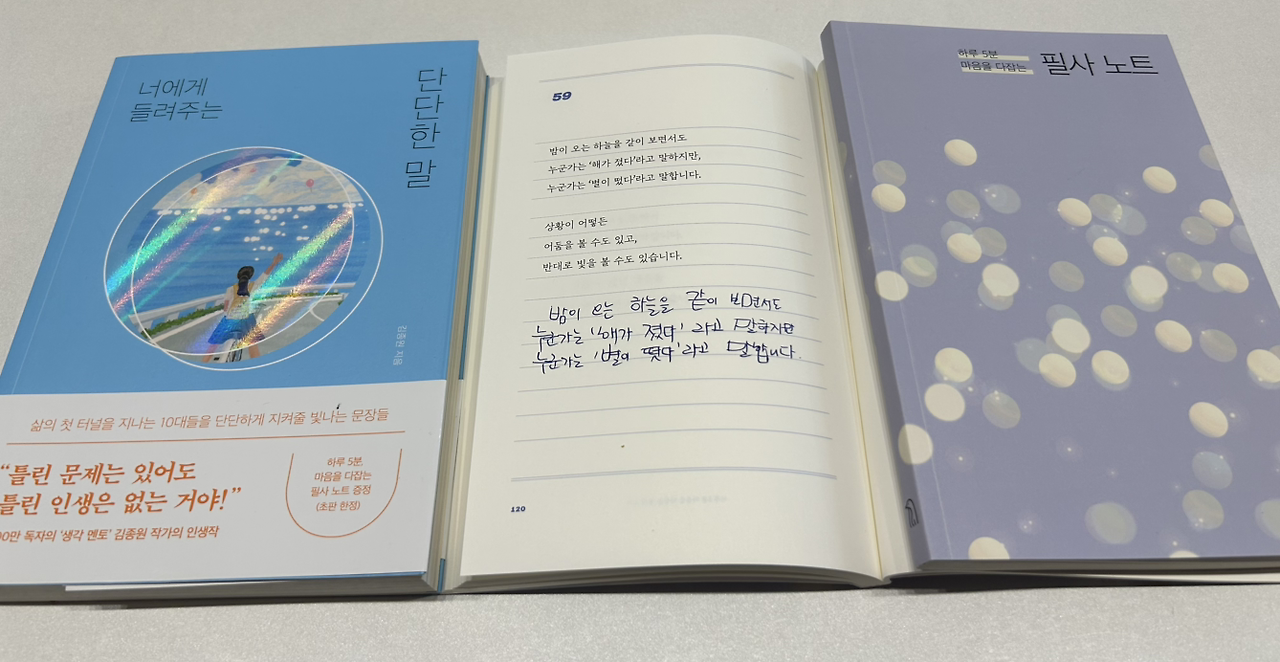 너에게
들려주는
단단한 말
김종원 지음
삶의 첫 터널을 지나는 10대들을 단단하게 지켜줄 빛나는 문장들
“틀린 문제는 있어도
틀린 인생은 없는 거야!”
00만 독자의 ‘생각 멘토’ 김종원 작가의 인생작
하루 5분,
마음을 다잡는
필사 노트 증정
(초판 한정)
59
밤이 오는 하늘을 같이 보면서도
누군가는 ‘해가 졌다’라고 말하지만,
누군가는 ‘별이 떴다’라고 말합니다.
상황이 어떻든
어둠을 볼 수도 있고,
반대로 빛을 볼 수도 있습니다.
밤이 오는 하늘을 같이 보면서도
누군가는 '해가 졌다' 라고 말하지만
누군가는 '별이 떴다'라고 말합니다.
120
하루 5분
마음을 다잡는
필사 노트